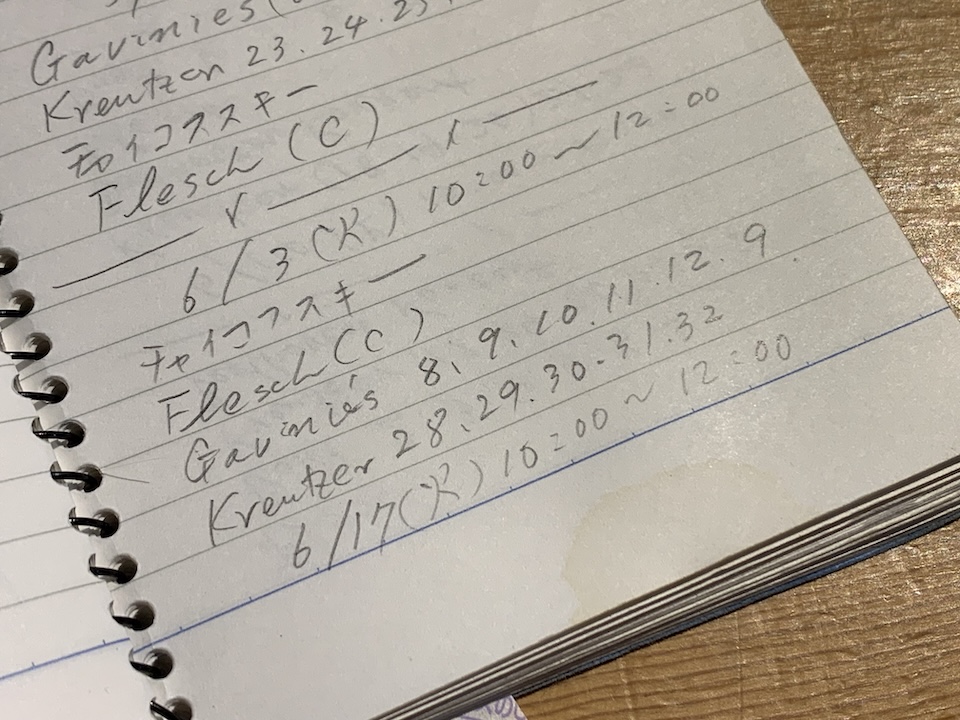 Gavinies(
Kreutzer 23.24.25
チャイコフスキー
Flesch (C)
6/3(火) 10:00~12:00
チャイコフスキー
Flesch(C)
Gaviniés 8、9、10、11.12.9
Kreutzer 28、29.30.31.32
6/17(火) 10:00~12:00